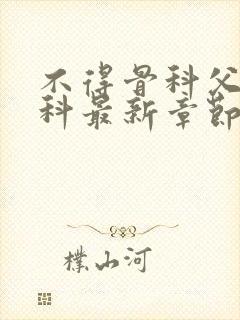 不得骨科父
科最新章節
樸山河